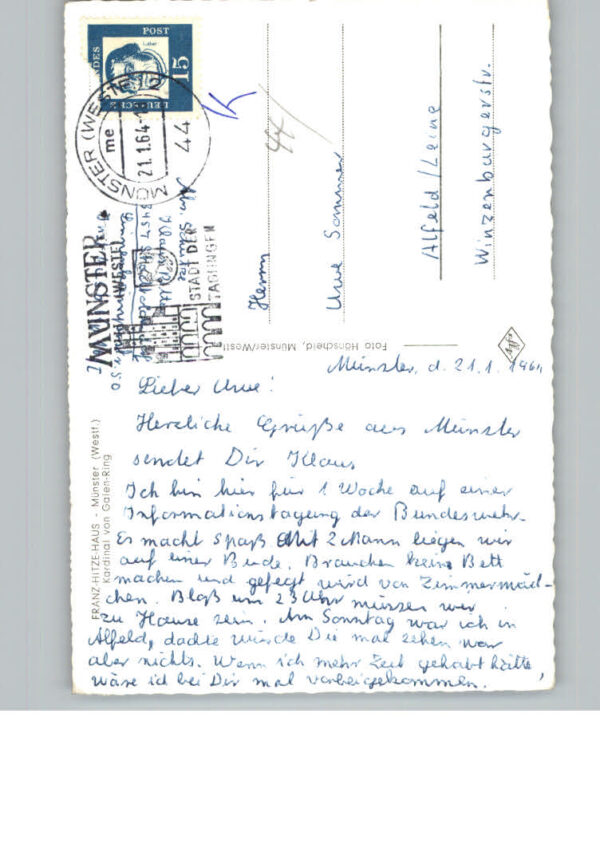 POST
Luther
15
MÜNSTER (WESTF)
me
21.1.64
44
MÜNSTER
(WESTF)
STADT DER
TAGUNGEN
44
Herrn
Uwe Sommer
Alfeld/Leine
Winzenburgerstr.
Foto Hönscheid, Münster/Westf.
FRANZ-HITZE-HAUS - Münster (Westf.)
Kardinal von Galen-Ring
Münster, d. 21.1.1964
Lieber Uwe!
Herzliche Grüße aus Münster
sendet Dir Klaus
Ich bin hier für 1 Woche auf einer
Informationstagung der Bundeswehr.
Es macht Spaß Mit 2 Mann liegen wir
auf einer Bude. Brauchen kein Bett
machen und gefegt wird von Zimmermäd-
chen. Bloß um 23 Uhr müssen wir
zu Hause sein. Am Sonntag war ich in
Alfeld, dachte würde Die mal sehen war
aber nichts. Wenn ich mehr Zeit gehabt hätte,
wäre ich bei Dir mal vorbeigekommen.